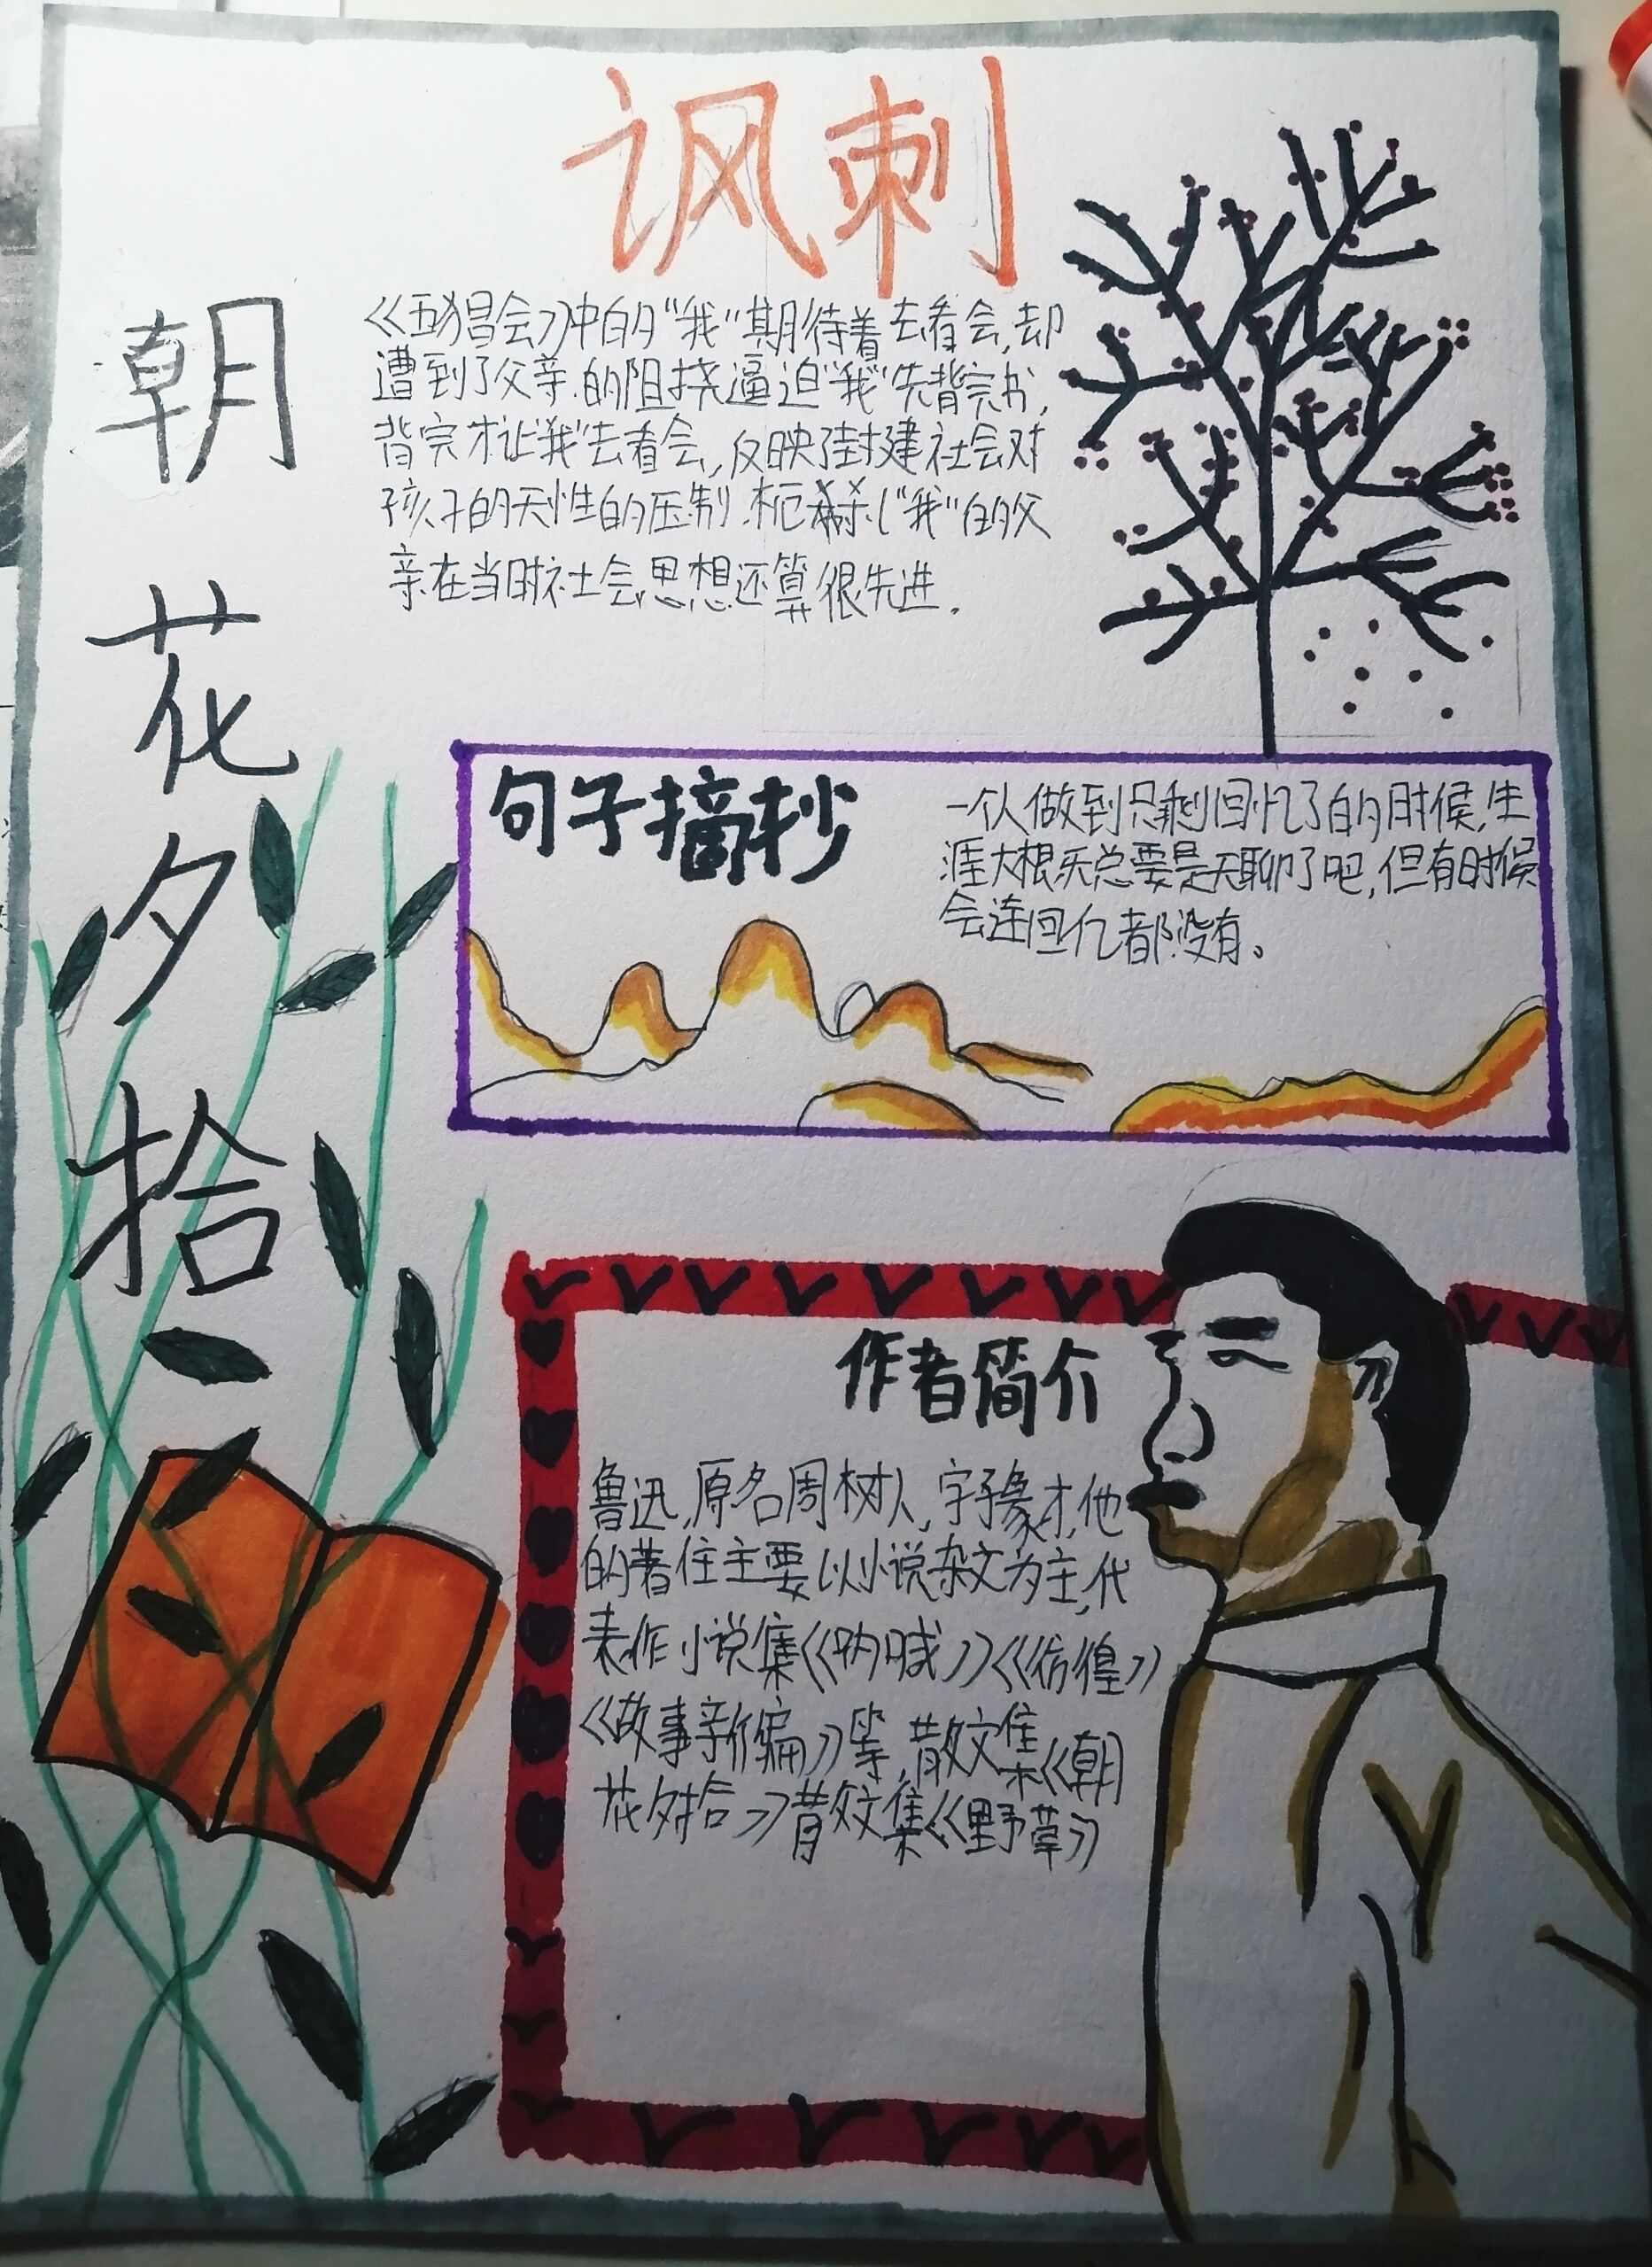 讽刺
朝花夕拾
《五猖会》中的"我"期待着去看会,却
遭到了父亲的阻挠逼迫"我"先背完书,
背完才让"我"去看会,反映了封建社会对
孩子的天性的压制.扼杀("我"的父
亲在当时社会思想还算很先进.
句子摘抄
一个人做到只剩回忆了的时候,生
涯大概总要是无聊了吧,但有时候
会连回忆都没有。
作者简介
鲁迅,原名周树人,字豫才,他
的著住主要以小说杂文为主,代
表作小说集《呐喊》《彷徨》
《故事新编》等,散文集《朝
花夕拾》散文集《野草》